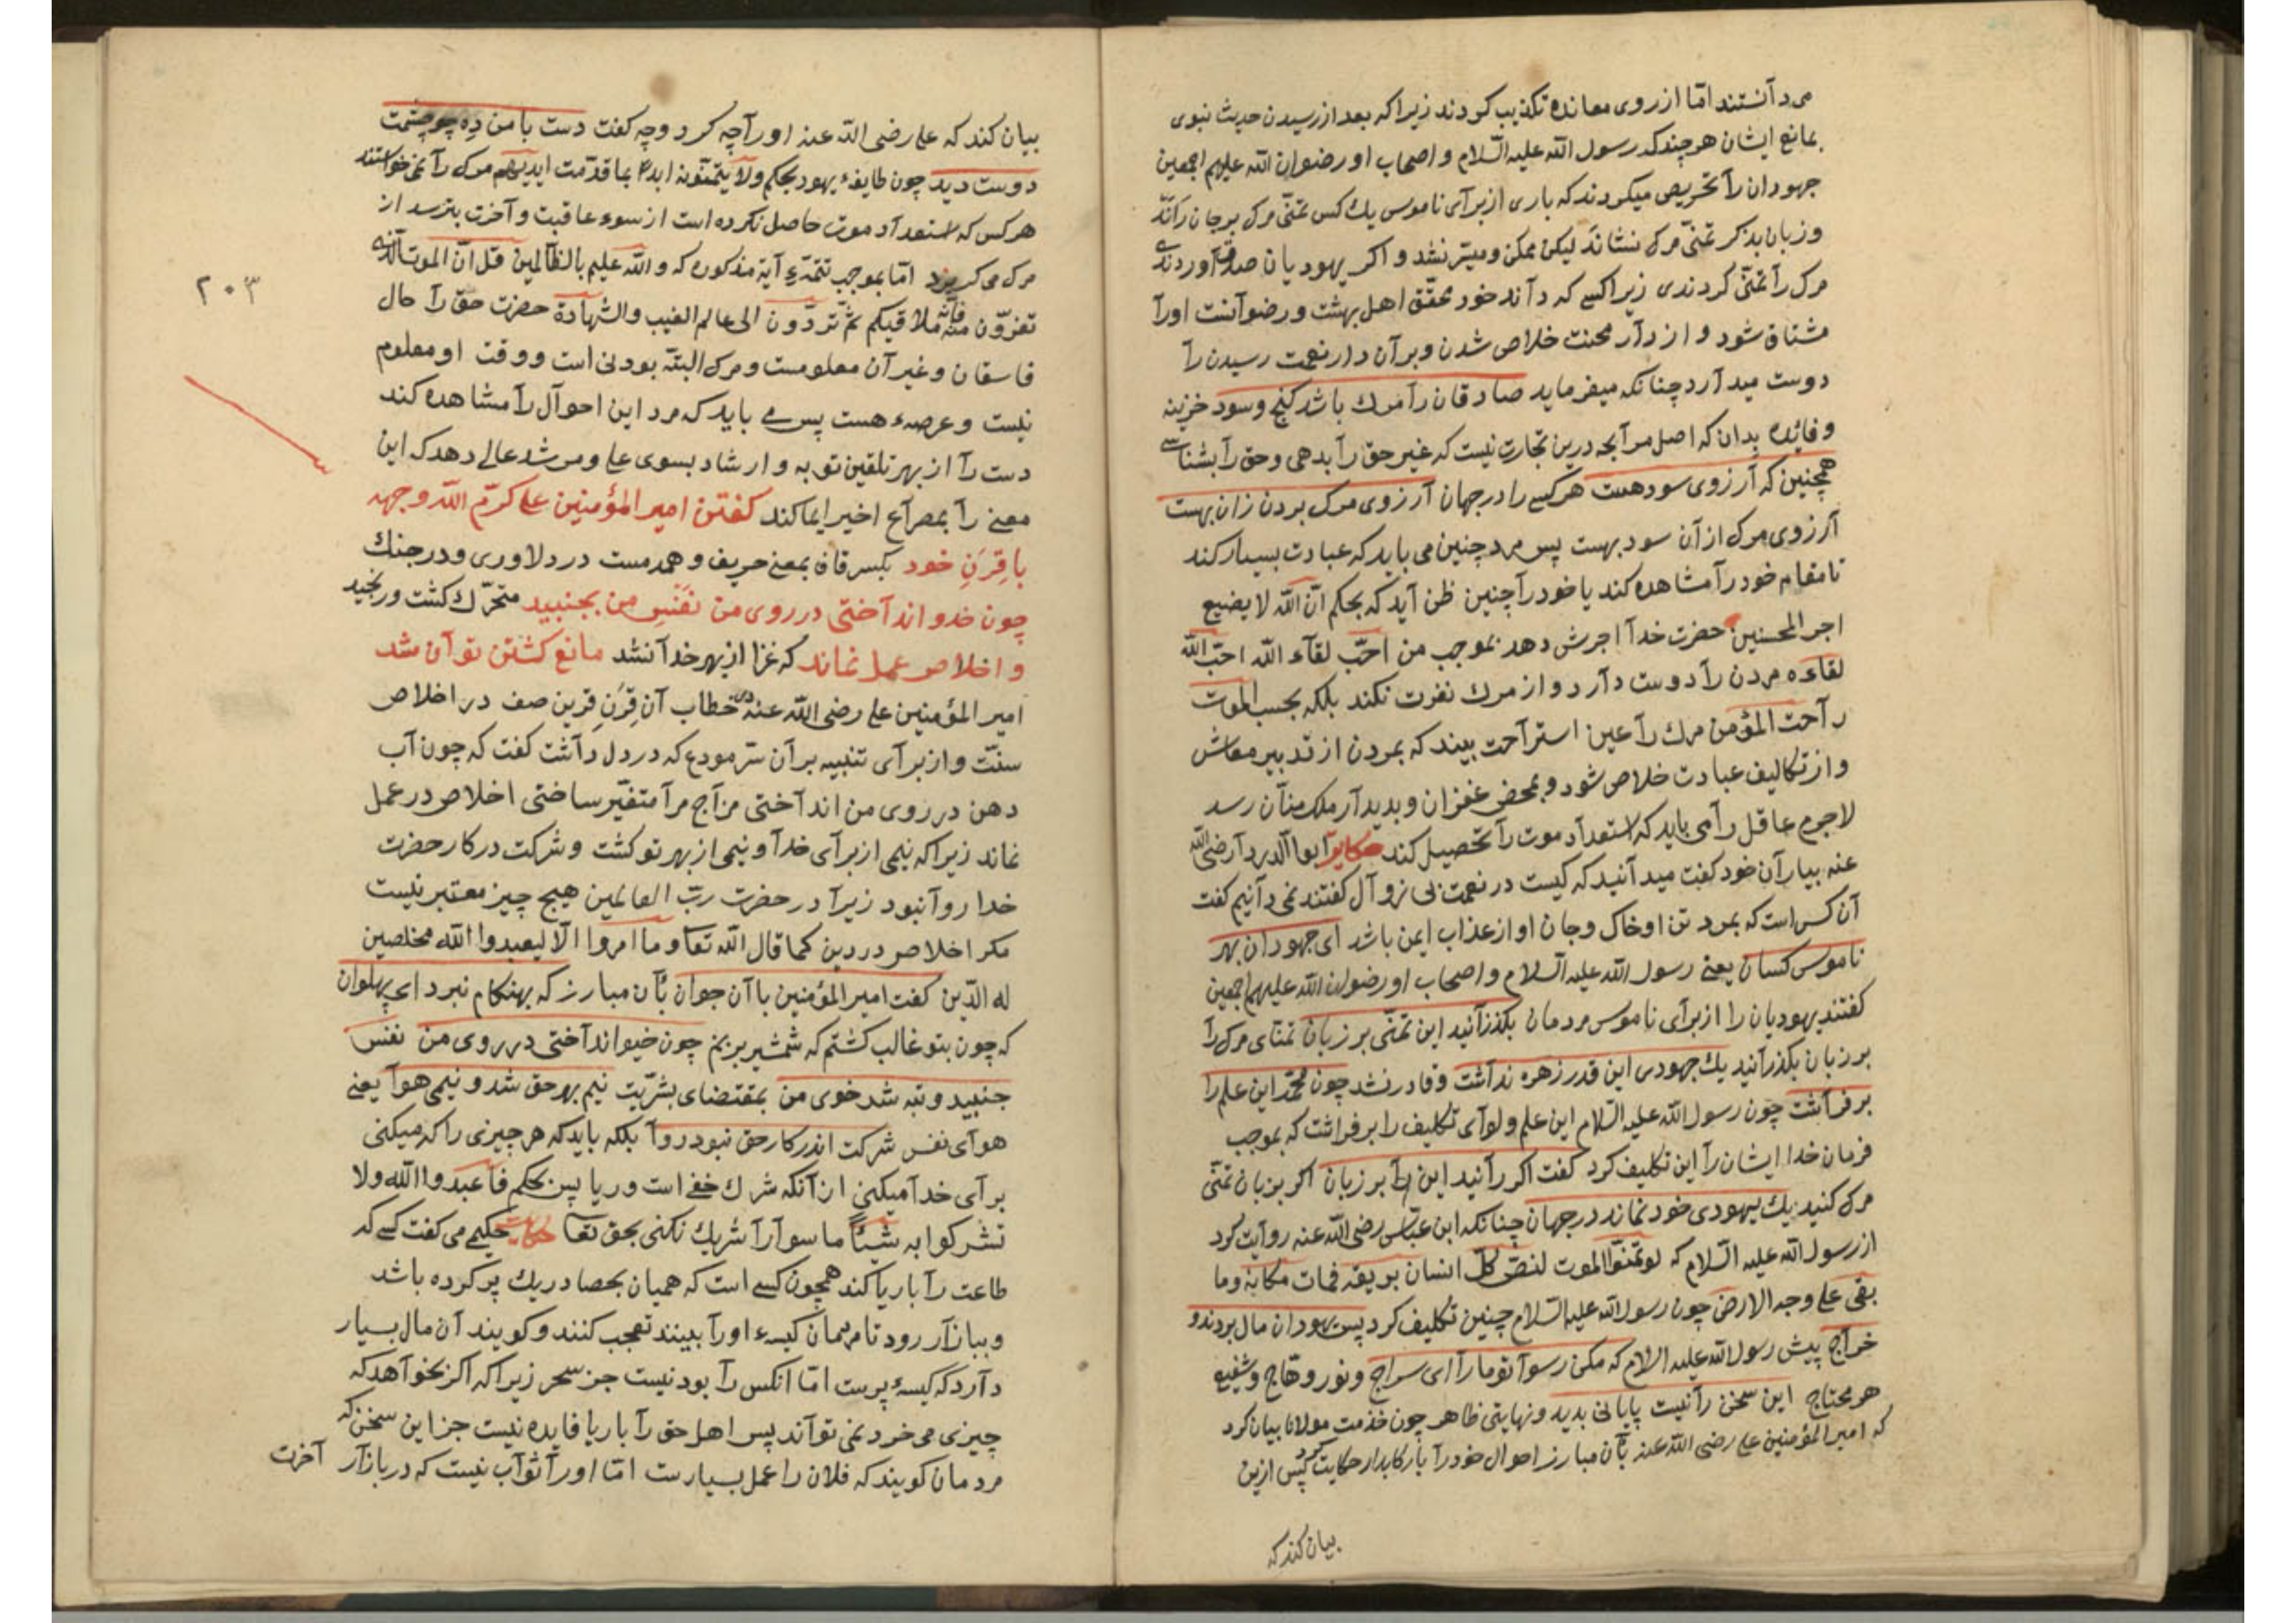 می دآنستند امّا از روی معانده تکذیب کردند زیرا که بعد از رسیدن حدیث نبوی
بمانع ایشان هر چند که رسول الله علیه السّلام و اصحاب او رضوان الله علیهم اجمعین
جهودان رآ تحریص میکردند که باری از برآی ناموس یك کس تمنّی مرك بر جان رآند
و زبان بذکر تمنّی مرك نشاند لیکن ممکن و میسّر نشد و اکر یهودیان صدق آوردندے
مرك رآ تمنّی کردندی زیرا کسے که دآند خود محقّق اهل بهشت و رضوآنست اورآ
مشتاق شود و از دآر محنت خلاص شدن و بر آن دار نعمت رسیدن رآ
دوست میدآرد چنانکه میفرماید صادقان رآ مرك باشد کنج و سود خزینه
و فائده بدان که اصل مرآبحه درین تجارت نیست که غیر حق رآ بدهی و حق رآ بشناسے
همچنین که آرزوی سود هست هر کسے را در جهان آرزوی مرك بردن زان بهست
آرزوی مرك از آن سود بهست پس مرد چنین می باید که عبادت بسیار کند
تا مقام خود رآ مشاهده کند یا خود رآ چنین ظن آید که بحکم انّ الله لا یضیع
اجر المحسنین حضرت خدآ اجرش دهد بموجب من احبّ لقآء الله احبّ الله
لقاءه مردن رآ دوست دآرد و از مرك نفرت نکند بلکه بحسب الموت
رآحت المؤمن مرك رآ عین استرآحت بیند که بمردن از تدبیر معاش
و از تکالیف عبادت خلاص شود و بمحض غفران و بدیدآر ملك منآن رسد
لاجرم عاقل رآ می باید که استعدآد موت رآ تحصیل کند حکایة ابوا الدردآ رضی الله
عنه بیارآن خود کفت میدآنید که کیست در نعمت بی زوآل کفتند نمی دآنیم کفت
آن کس است که بمرد تن او خاک و جان او از عذاب ایمن باشد ای جهودان بهر
ناموس کسان یعنی رسول الله علیه السّلام و اصحاب او رضوان الله علیهم اجمعین
کفتند یهودیان را از برآی ناموس مردمان بکذرآنید این تمنّی بر زبان تمنّای مرك رآ
بر زبان بکذرآنید یك جهودی این قدر زهره ندآشت و قادر نشد چون محمّد این علم را
بر فرآشت چون رسول الله علیه السّلام این علم و لوآی تکلیف را بر فراشت که بموجب
فرمان خدا ایشان رآ این تکلیف کرد کفت اکر رآنید این رآ بر زبان اکر بزبان تمنّی
مرك کنید یك یهودی خود نماند در جهان چنانکه ابن عبّاس رضی الله عنه روآیت کرد
از رسول الله علیه السّلام که لو تمنّوا الموت لغصّ کلّ انسان بریقه فمات مکانه وما
بقی علی وجه الارض چون رسول الله علیه السّلام چنین تکلیف کرد پس یهودان مال بردند و
خرآج پیش رسول الله علیه السلام که مکن رسوآ تو مارآ ای سراج و نور وهّاج و شفیع
هر محتاج این سخن رآ نیست پایانی بدید و نهایتی ظاهر چون خدمت مولانا بیان کرد
که امیر المؤمنین علی رضی الله عنه بآن مبارز احوال خود رآ با رکابدار حکایت کرد پس ازین
بیان کند که
بیان کند که علی رضی الله عنه اورآ چه کرد و چه کفت دست با من ده چو چشمت
دوست دید چون طایفهٔ یهود بحکم ولا یتمنّونه ابدا بما قدّمت ایدیهم مرك رآ نمی خواستند
هر کس که استعدآد موت حاصل نکرده است از سوء عاقبت و آخرت بترسد از
مرك می کریزد امّا بموجب تتمّهٔ آیة مذکوره که والله علیم بالظّالمین قل انّ الموت الّذی
تفرّون منه فانّه ملاقیکم ثمّ تردّون الی عالم الغیب والشّهادة حضرت حق رآ حال
فاسقان و غیر آن معلومست و مرك البتّه بودنی است و وقت او معلوم
نیست و عرصه هست پس مے باید که مرد این احوآل رآ مشاهده کند
دست رآ از بهر تلقین توبه و ارشاد بسوی علی و مرشد عالی دهد که این
معنے رآ بمصرآع اخیر ایما کند کفتن امیر المؤمنین علی کرّم الله وجهه
با قِرَنِ خود بکسر قاف بمعنے حریف و همدمست در دلاوری و در جنك
چون خدو اندآختی در روی من نفسِ من بجنبید متحرّك کشت و رنجید
و اخلاص عمل نماند که غزا از بهر خدآ نشد مانع کشتن تو آن شد
امیر المؤمنین علی رضی الله عنه در خطاب آن قِرَنِ قرین صف در اخلاص
سنّت و از برآی تنبیه بر آن سرّ مودع که در دل دآشت کفت که چون آب
دهن در روی من اندآختی مزآج مرآ متغیّر ساختی اخلاص در عمل
نماند زیرا که نیمی از برآی خدآ و نیمی از بهر تو کشت و شرکت در کار حضرت
خدا روآ نبود زیرآ در حضرت ربّ العالمین هیچ چیز معتبر نیست
مکر اخلاص در دین کما قال الله تعا وما امروا الّا لیعبدوا الله مخلصین
له الدّین کفت امیر المؤمنین با آن جوان بآن مبارز که بهنکام نبرد ای پهلوان
که چون بتو غالب کشتم که شمشیر بزنم چون خیو اندآختی در روی من نفس
جنبید و تبه شد خوی من بمقتضای بشریّت نیم بهر حق شد و نیمی هوآ یعنی
هوآی نفس شرکت اندر کار حق نبود روآ بلکه باید که هر چیزی را که میکنی
برآی خدآ میکنی از آنکه شرك خفی است و ریا پس بحکم فاعبدوا الله ولا
تشرکوا به شیئاً ما سوآرآ شریك نکنی بحق تعا حکایت حکیمے می کفت کسے که
طاعت رآ با ریا کند همچون کسے است که همیان بحصا و ریك پر کرده باشد
و ببازآر رود تا مردمان کیسهٔ اورآ ببینند تعجب کنند و کویند آن مال بسیار
دآرد که کیسهٔ پرست امّا انکس رآ بود نیست جز سحر زیرا که اکر بخوآهد که
چیزی می خرد نمی توآند پس اهل حق رآ با ریا فایده نیست جز این سخن که
مردمان کویند که فلان را عمل بسیارست امّا اورآ ثوآب نیست که در بازآر آخرت
٢٠٣